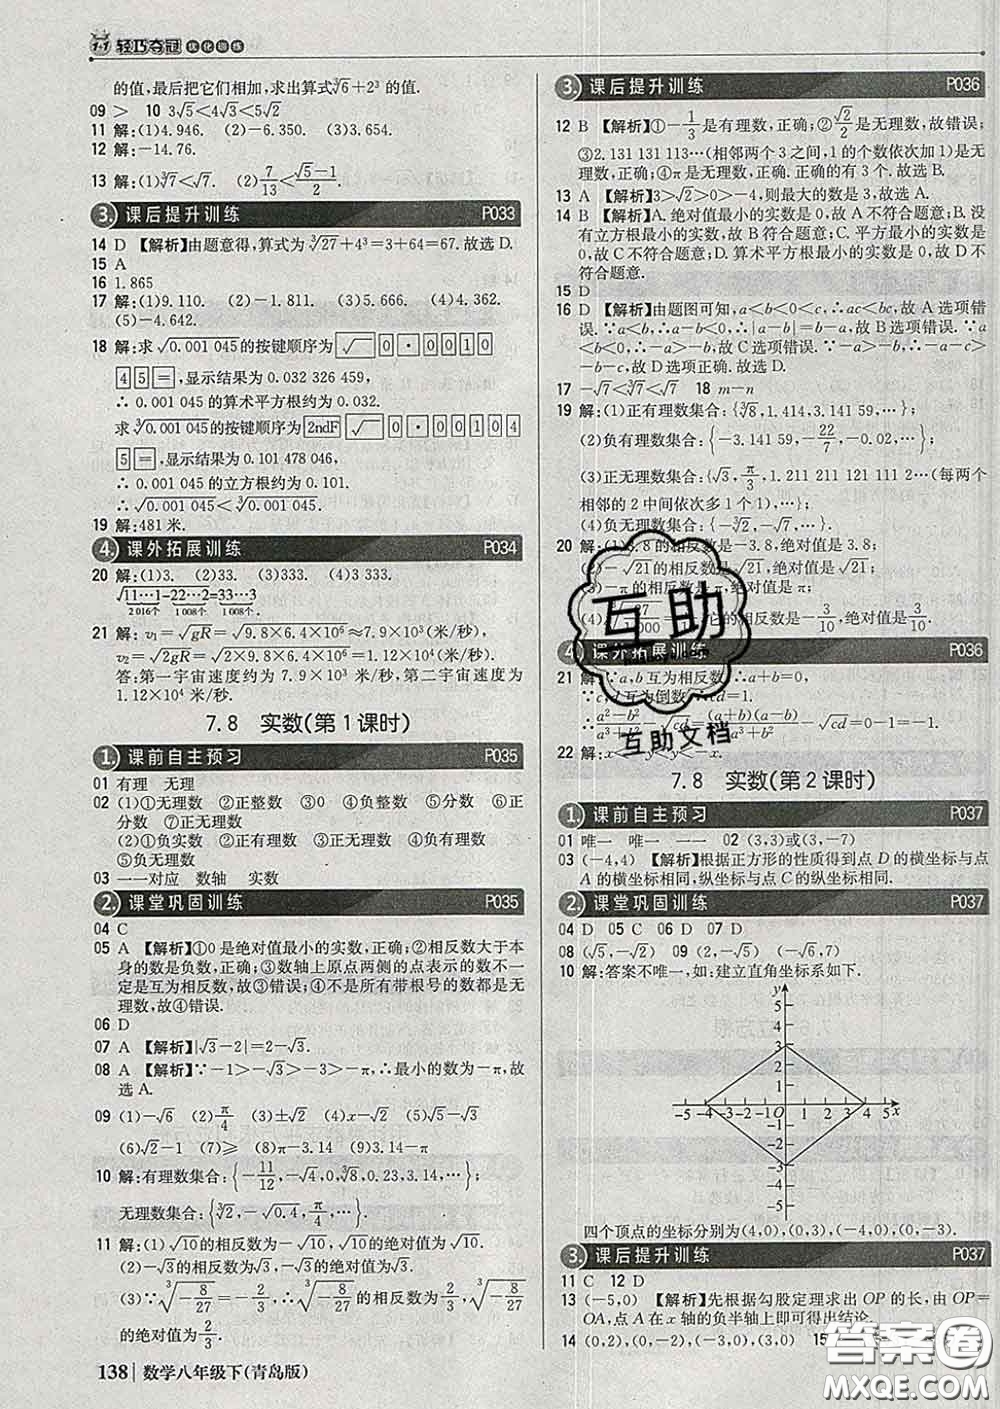 1+1 轻巧夺冠 优化训练
的值,最后把它们相加,求出算式∛6+2³ 的值.
09 > 10 3√5<4√3<5√2
11 解:(1)4.946. (2)-6.350. (3)3.654.
12 解:-14.76.
13 解:(1)∛7<√7. (2)7/13<(√5-1)/2.
3. 课后提升训练 P033
14 D 【解析】由题意得,算式为∛27+4³=3+64=67.故选 D.
15 A
16 1.865
17 解:(1)9.110. (2)-1.811. (3)5.666. (4)4.362.
(5)-4.642.
18 解:求√0.001 045的按键顺序为 √ 0 · 0 0 1 0
4 5 = ,显示结果为 0.032 326 459,
∴ 0.001 045 的算术平方根约为 0.032.
求∛0.001 045的按键顺序为 2ndF √ 0 · 0 0 1 0 4
5 = ,显示结果为 0.101 478 046,
∴ 0.001 045 的立方根约为 0.101.
∴√0.001 045<∛0.001 045.
19 解:481 米.
4. 课外拓展训练 P034
20 解:(1)3. (2)33. (3)333.
√11…1-22…2=33…3.
2 016个 1 008个 1 008个
21 解:v₁=√gR=√9.8×6.4×10⁶≈7.9×10³(米/秒),
v₂=√2gR=√2×9.8×6.4×10⁶≈1.12×10⁴(米/秒).
答:第一宇宙速度约为 7.9×10³ 米/秒,第二宇宙速度为
1.12×10⁴ 米/秒.
7.8 实数(第 1 课时)
1. 课前自主预习 P035
01 有理 无理
02 (1)①无理数 ②正整数 ③0 ④负整数 ⑤分数 ⑥正
分数 ⑦正无理数
(2)①负实数 ②正有理数 ③正无理数 ④负有理数
⑤负无理数
03 一一对应 数轴 实数
2. 课堂巩固训练 P035
04 C
05 A 【解析】①0 是绝对值最小的实数,正确;②相反数大于本
身的数是负数,正确;③数轴上原点两侧的点表示的数不一
定是互为相反数,故③错误;④不是所有带根号的数都是无
理数,故④错误.
06 D
07 A 【解析】|√3-2|=2-√3.
08 A 【解析】∵-1>-√3>-3>-π,∴最小的数为-π,故
选 A.
09 (1)-√6 (2)π/4 (3)±√2 (4)x-√2 (5)-√2
(6)√2-1 (7)≥ (8)π-3.14 (9)3.14-π
10 解:有理数集合:{-11/12,-√4,0,∛8,0.23,3.14,…};
无理数集合:{∛2,-√0.4,π/4,…}.
11 解:(1)√10的相反数为-√10,√10的绝对值为√10.
(2)-√3的相反数为√3,-√3的绝对值为√3.
(3)∵∛(-8/27)=-2/3,∴∛(-8/27)的相反数为2/3,∛(-8/27)
的绝对值为2/3.
138 数学八年级下(青岛版)
3. 课后提升训练 P036
12 B 【解析】①-1/3是有理数,正确;②√2/2是无理数,故错误;
③2.131 131 113…(相邻两个 3 之间,1 的个数依次加 1)是无
理数,正确;④π 是无理数,正确.正确的有 3 个.故选 B.
13 A 【解析】3>√2>0>-4,则最大的数是 3,故选 A.
14 B 【解析】A.绝对值最小的实数是 0,故 A 不符合题意;B.没
有立方根最小的实数,故 B 符合题意;C.平方最小的实数是
0,故 C 不符合题意;D.算术平方根最小的实数是 0,故 D 不
符合题意.
15 D
16 D 【解析】由题图可知,a<b<0<c,∴ac<bc,故 A 选项错
误.∵a<b,∴a-b<0,∴|a-b|=b-a,故 B 选项错误.∵a
<b<0,∴-a>-b,故 C 选项错误.∵-a>-b,∴-a-c>
-b-c,故 D 选项正确.故选 D.
17 -√7<∛7<√7 18 m-n
19 解:(1)正有理数集合:{∛8,1.414,3.141 59,…};
(2)负有理数集合:{-3.141 59,-22/7,-0.02,…};
(3)正无理数集合:{√3,π/3,1.211 211 121 112…(每两个
相邻的 2 中间依次多 1 个 1),…};
(4)负无理数集合:{-∛2,-√7,…}.
20 解:(1)3.8 的相反数是-3.8,绝对值是 3.8;
(2)-√21的相反数是√21,绝对值是√21;
(3)-π 的相反数是 π,绝对值是 π;
它的相反数是-3/10,绝对值是3/10.
4. 课外拓展训练 P036
21 解:∵a,b 互为相反数,∴a+b=0,
∵c,d 互为倒数,∴cd=1.
∴(a²-b²)/(a³+b²)-√cd=(a+b)(a-b)/(a³+b²)-√cd=0-1=-1.
22 解:x<-y<y<-x.
7.8 实数(第 2 课时)
1. 课前自主预习 P037
01 唯一 唯一 一一 02 (3,3)或(3,-7)
03 (-4,4) 【解析】根据正方形的性质得到点 D 的横坐标与点
A 的横坐标相同,纵坐标与点 C 的纵坐标相同.
2. 课堂巩固训练 P037
04 D 05 C 06 D 07 D
08 (√5,-√2) 09 (2,-√5) (-√6,√7)
10 解:答案不唯一,如:建立直角坐标系如下.
y
5
4
3
2
1
-5 -4 -3 -2 -1 O 1 2 3 4 5 x
-1
-2
-3
-4
-5
四个顶点的坐标分别为(4,0),(0,3),(-4,0),(0,-3).
3. 课后提升训练 P037
11 C 12 D
13 (-5,0) 【解析】先根据勾股定理求出 OP 的长,由 OP=
OA,点 A 在 x 轴的负半轴上即可得出结论.
14 (0,2),(0,-2),(-3,0),(3,0) 15
互助
互助文档
答案圈
MXQE.COM